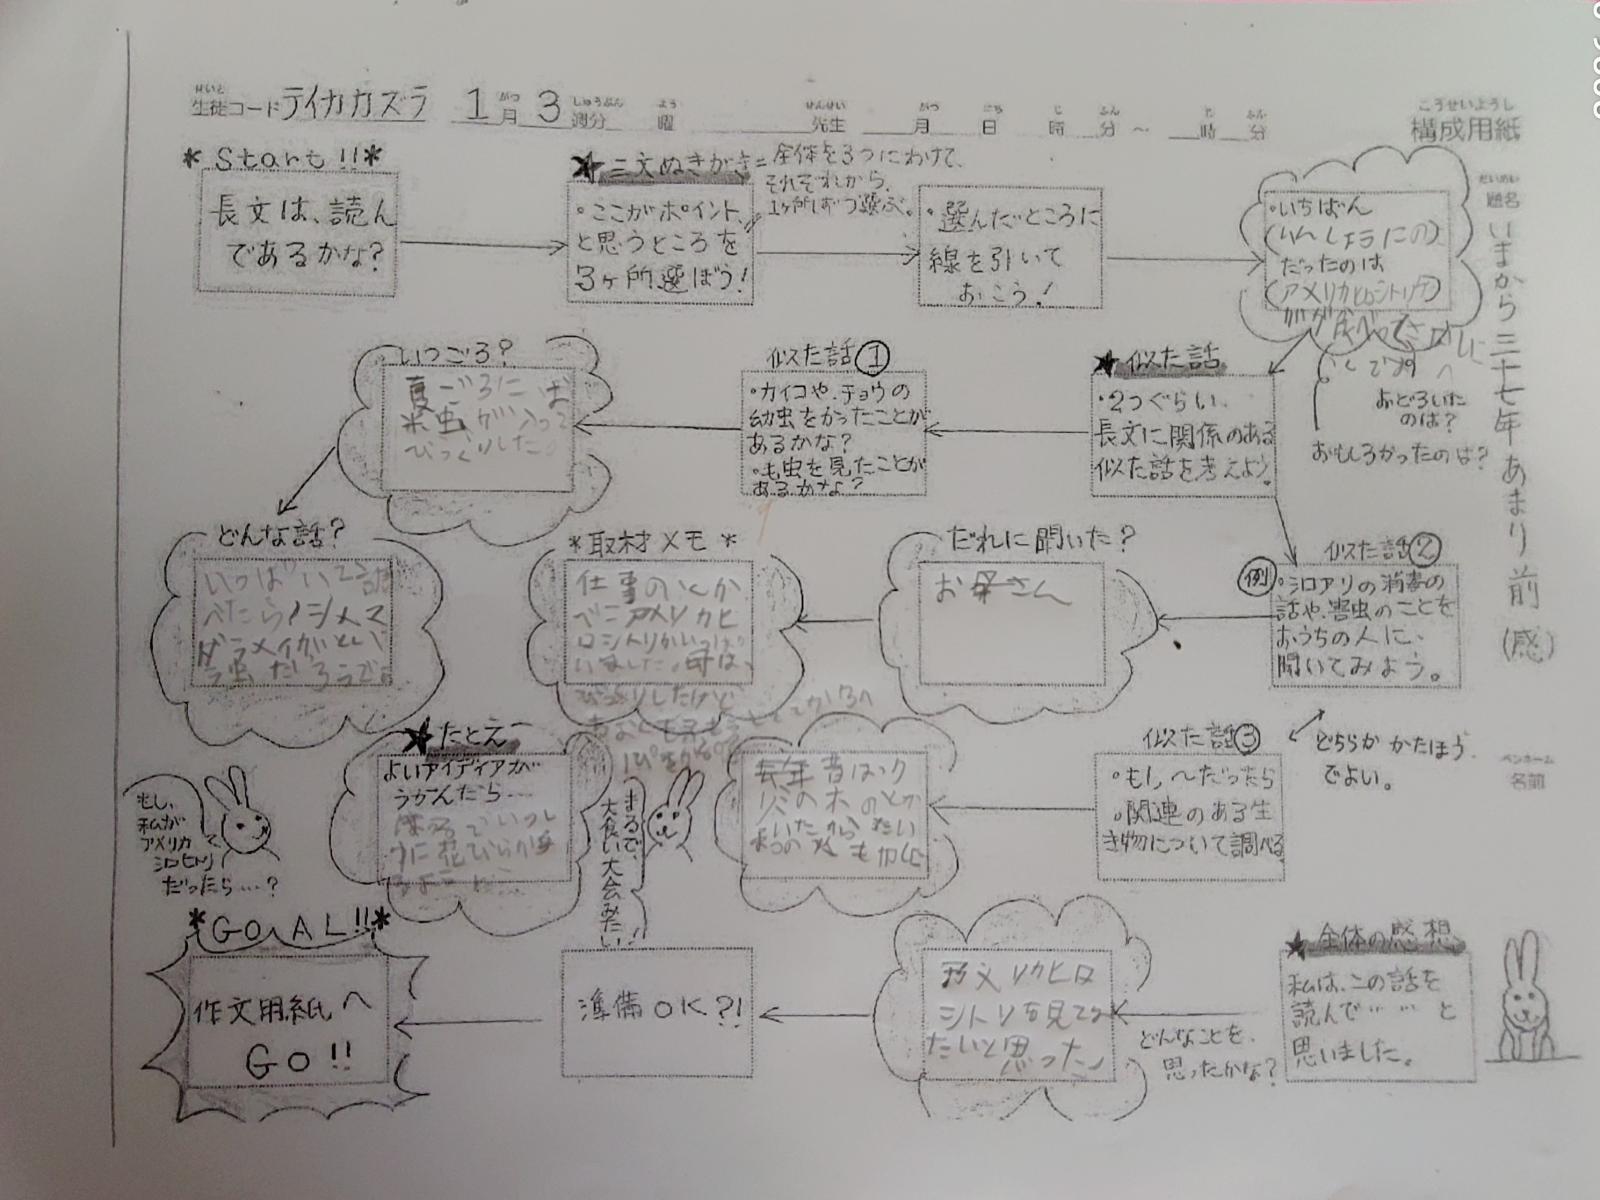 生徒コード テイカカズラ 1月3週分 曜 先生 月 日 時 分〜 時 分
構成用紙
題名 いまから三十七年あまり前(感)
*Start!!*
長文は、読ん
であるかな?
★三文ぬきがき=全体を3つにわけて、
それぞれから、
1ヶ所しずつ選ぶ。
・ここがポイント、
と思うところを
3ヶ所選ぼう!
・選んだところに
線を引いて
おこう!
・いちばん
(いんしょうにの)
だったのは
(アメリカヒロシトリ
です
おどろいた
のは?
おもしろかったのは?
★似た話
・2つぐらい、
長文に関係のある
似た話を考えよう。
似た話①
・カイコや、チョウの
幼虫をかったことが
あるかな?
・毛虫を見たことが
あるかな?
いつごろ?
夏ごろにお
米虫が入って
びっくりした。
どんな話?
いっぱいで調
べたらノシメマ
ダラメイガとい
う虫だそうです
似た話②
例
・シロアリの消毒の
話や、害虫のことを
おうちの人に、
聞いてみよう。
どちらか かたほう
でよい。
だれに聞いた?
お母さん
*取材メモ*
仕事の
アメリカヒ
ロシトリがいっぱい
いました。母は、
びっくりしたけど
似た話③
・もし〜だったら
・関連のある生
き物について調べる
★たとえ
よいアイディアが
うかんだら…
まるで、
大食い大会みたい!
もし、
私が
アメリカ
シロヒトリ
だったら…?
ペンネーム
名前
★全体の感想
私は、この話を
読んで……と
思いました。
どんなことを、
思ったかな?
シトリを見てみ
たいと思った
準備OK?!
*GOAL!!*
作文用紙へ
GO!!